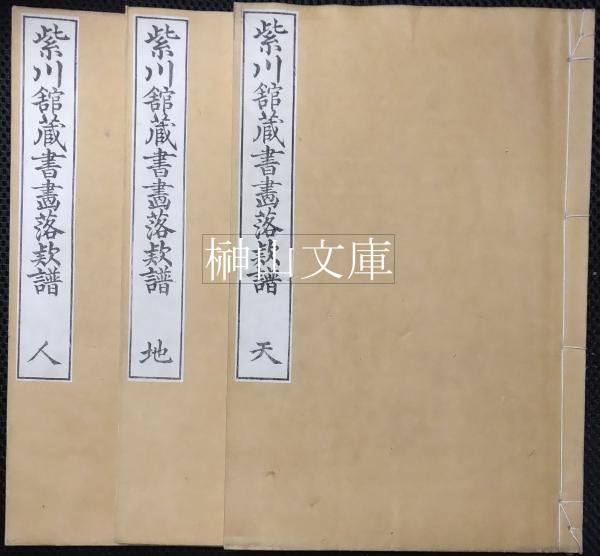 紫川舘蔵書畫落欵譜 天
紫川舘蔵書畫落欵譜 地
紫川舘蔵書畫落欵譜 人
榊山文庫